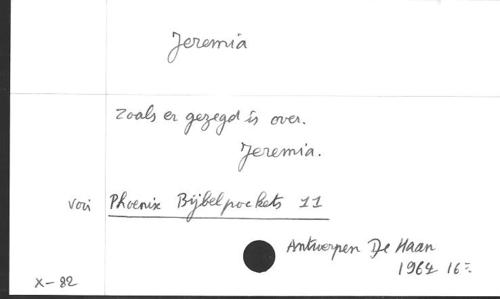 Jeremia
Zoals er gezegd is over.
Jeremia.
voir Phoenix Bijbelpockets 11
Antwerpen De Haan
1964 16º
X-82